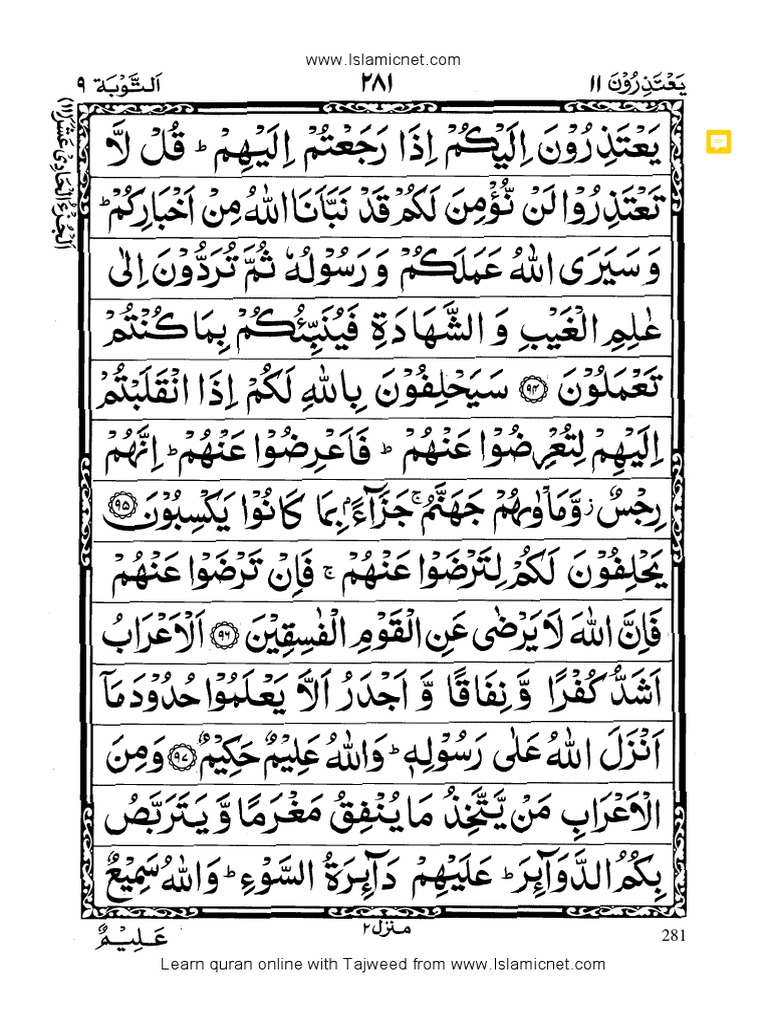 www.Islamicnet.com
يَعْتَذِرُوْنَ ۱۱
۲۸۱
اَلتَّوْبَة ۹
اَلْجُزْءُ الْحَادِیْ عَشَرَ (۱۱)
يَعْتَذِرُوْنَ اِلَيْكُمْ اِذَا رَجَعْتُمْ اِلَيْهِمْ ؕ قُلْ لَّا
تَعْتَذِرُوْا لَنْ نُّؤْمِنَ لَكُمْ قَدْ نَبَّاَنَا اللّٰهُ مِنْ اَخْبَارِكُمْ ؕ
وَ سَيَرَى اللّٰهُ عَمَلَكُمْ وَ رَسُوْلُهٗ ثُمَّ تُرَدُّوْنَ اِلٰى
عٰلِمِ الْغَيْبِ وَ الشَّهَادَةِ فَيُنَبِّئُكُمْ بِمَا كُنْتُمْ
تَعْمَلُوْنَ ۹۴ سَيَحْلِفُوْنَ بِاللّٰهِ لَكُمْ اِذَا انْقَلَبْتُمْ
اِلَيْهِمْ لِتُعْرِضُوْا عَنْهُمْ ؕ فَاَعْرِضُوْا عَنْهُمْ ؕ اِنَّهُمْ
رِجْسٌ ز وَّمَاْوٰىهُمْ جَهَنَّمُ ۚ جَزَآءًۢ بِمَا كَانُوْا يَكْسِبُوْنَ ۹۵
يَحْلِفُوْنَ لَكُمْ لِتَرْضَوْا عَنْهُمْ ۚ فَاِنْ تَرْضَوْا عَنْهُمْ
فَاِنَّ اللّٰهَ لَا يَرْضٰى عَنِ الْقَوْمِ الْفٰسِقِيْنَ ۹۶ اَلْاَعْرَابُ
اَشَدُّ كُفْرًا وَّ نِفَاقًا وَّ اَجْدَرُ اَلَّا يَعْلَمُوْا حُدُوْدَ مَآ
اَنْزَلَ اللّٰهُ عَلٰى رَسُوْلِهٖ ؕ وَاللّٰهُ عَلِيْمٌ حَكِيْمٌ ۹۷ وَمِنَ
الْاَعْرَابِ مَنْ يَّتَّخِذُ مَا يُنْفِقُ مَغْرَمًا وَّ يَتَرَبَّصُ
بِكُمُ الدَّوَآئِرَ ؕ عَلَيْهِمْ دَآئِرَةُ السَّوْءِ ؕ وَاللّٰهُ سَمِيْعٌ
عَلِيْمٌ
منزل ۲
281
Learn quran online with Tajweed from www.Islamicnet.com